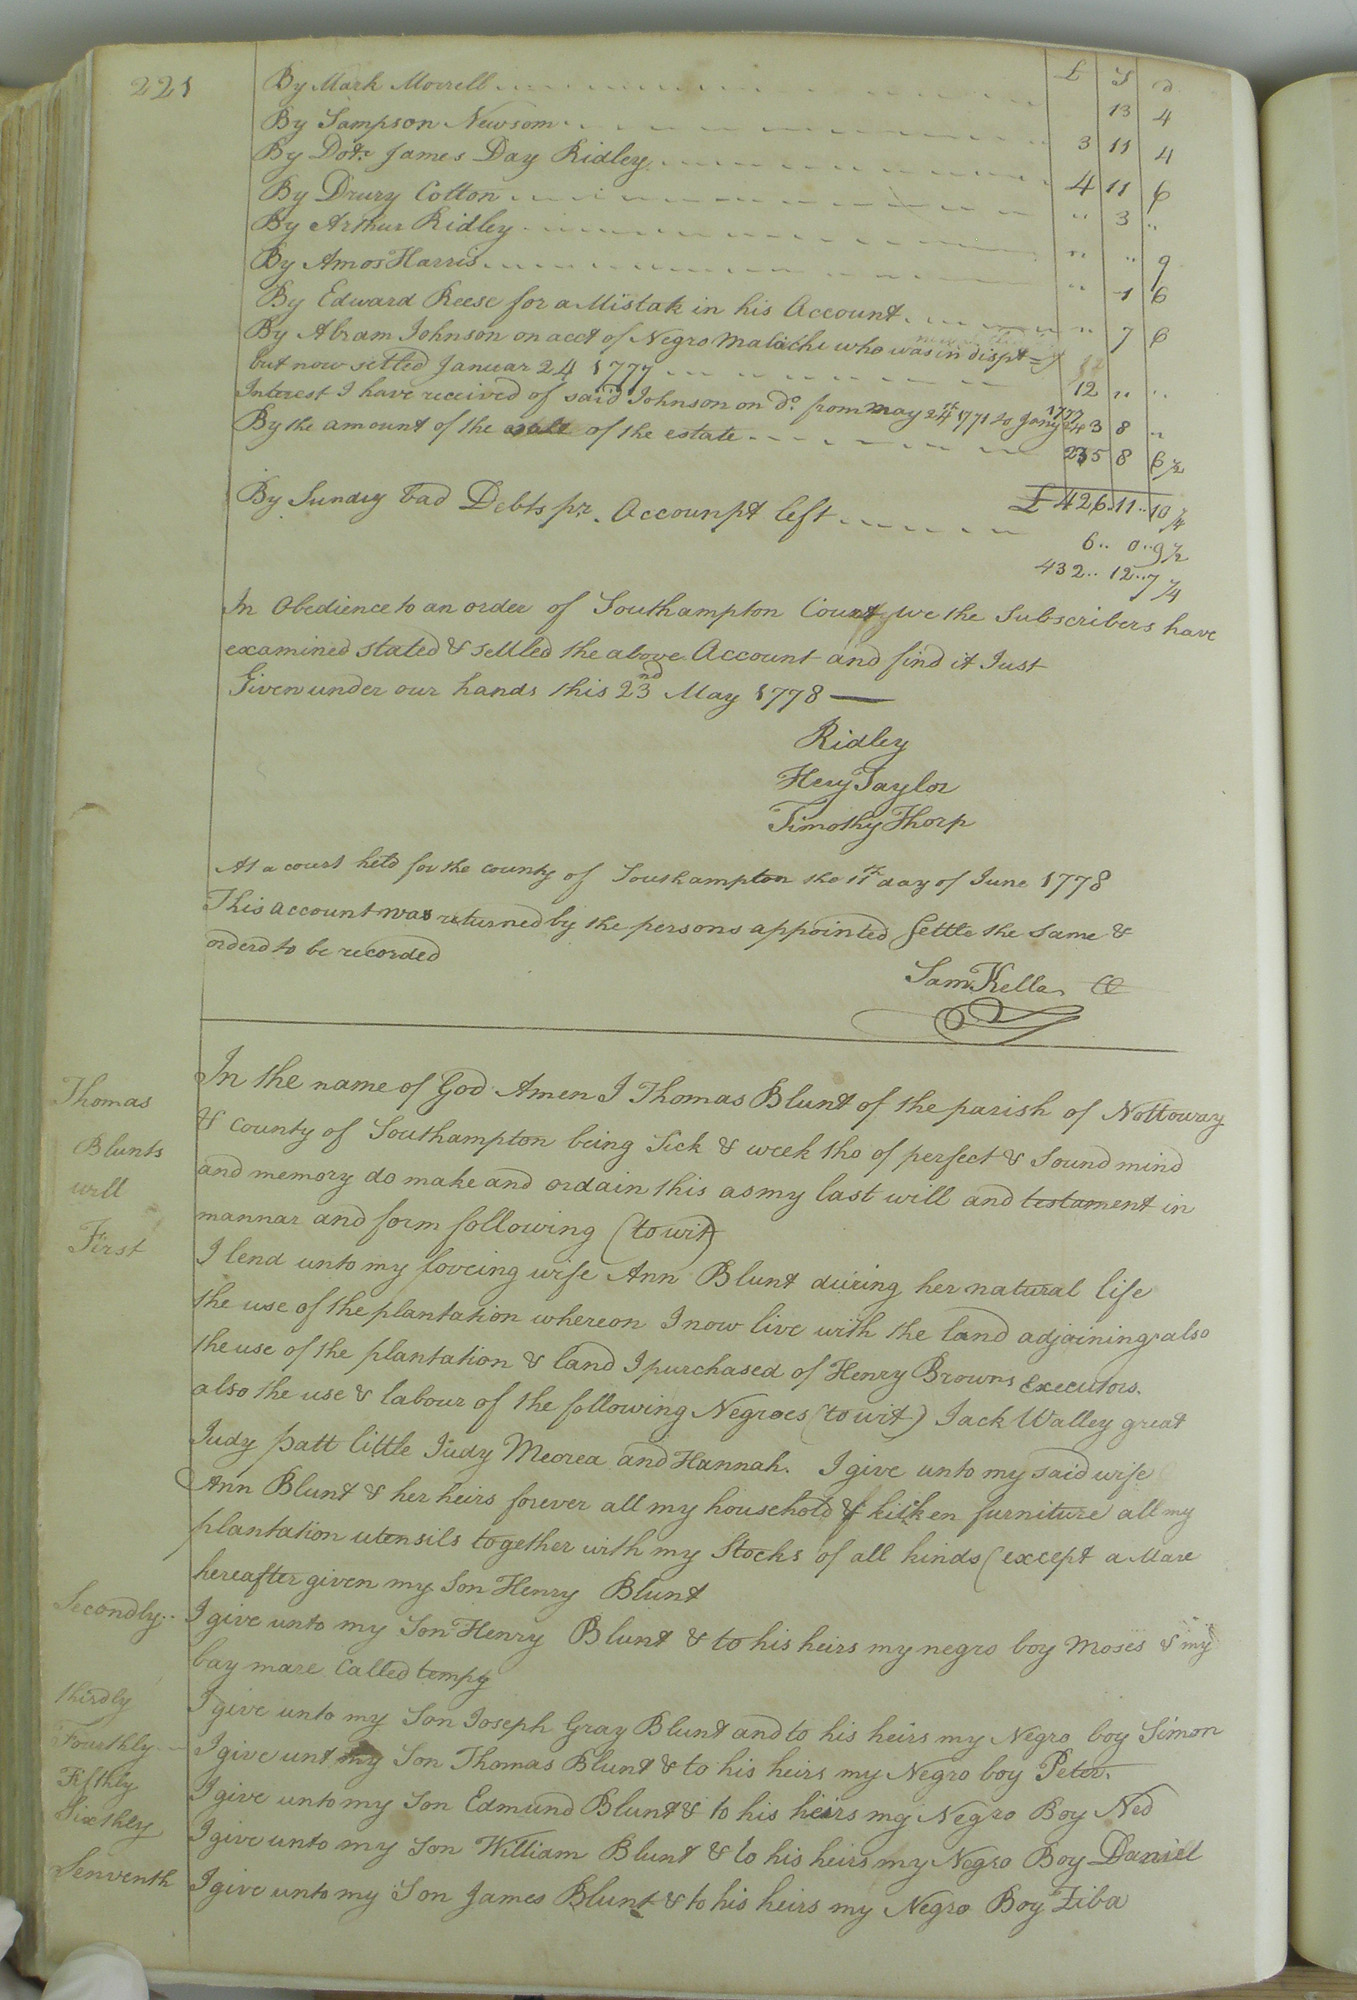 221
£ S d
By Mark Morrell 13 4
By Sampson Newsom 3 11 4
By Dotr James Day Ridley 4 11 6
By Drury Cotton " 3 "
By Arthur Ridley " " 9
By Amos Harris " 1 6
By Edward Reese for a Mistak in his Account " 7 6
By Abram Johnson on acct of Negro Malichi who was in dispt
but now setled Januar 24 1777 12 " "
Interest I have received of said Johnson on Do. from May 24th 1771 to Jany 24 1777 3 8 "
By the amount of the sale of the estate 235 8 6½
£ 426..11..10¼
By Sundry bad Debts pr. Accounpt left 6.. 0..9½
432.. 12..7¼
In Obedience to an order of Southampton Court, we the Subscribers have
examined stated & settled the above Account and find it Just
Given under our hands this 23nd May 1778
Ridley
Hery Taylor
Timothy Thorp
At a court held for the county of Southampton the 11th day of June 1778
This account was returned by the persons appointed Settle the Same &
orderd to be recorded
Sam. Kello CC
Thomas
Blunts
will
In the name of God Amen I Thomas Blunt of the parish of Nottoway
& County of Southampton being Sick & week tho of perfect & Sound mind
and memory do make and ordain this as my last will and testament in
mannar and form following (to wit)
First
I lend unto my loveing wife Ann Blunt during her natural life
the use of the plantation whereon I now live with the land adjoining also
the use of the plantation & land I purchased of Henry Browns Executors.
also the use & labour of the following Negroes (to wit) Jack Walley great
Judy patt little Judy Meorea and Hannah. I give unto my said wife
Ann Blunt & her heirs forever all my household & kitken furniture all my
plantation utensils together with my Stocks of all kinds (except a Mare
hereafter given my Son Henry Blunt
Secondly.. I give unto my Son Henry Blunt & to his heirs my negro boy Moses & my
bay mare Called tempy
thirdly I give unto my Son Joseph Gray Blunt and to his heirs my Negro boy Simon
Fourthly I give unt my Son Thomas Blunt & to his heirs my Negro boy Peter.
Fifthly I give unto my Son Edmund Blunt & to his heirs my Negro Boy Ned
Sixthly I give unto my Son William Blunt & to his heirs my Negro Boy Daniel
Senventh I give unto my Son James Blunt & to his heirs my Negro Boy Ziba